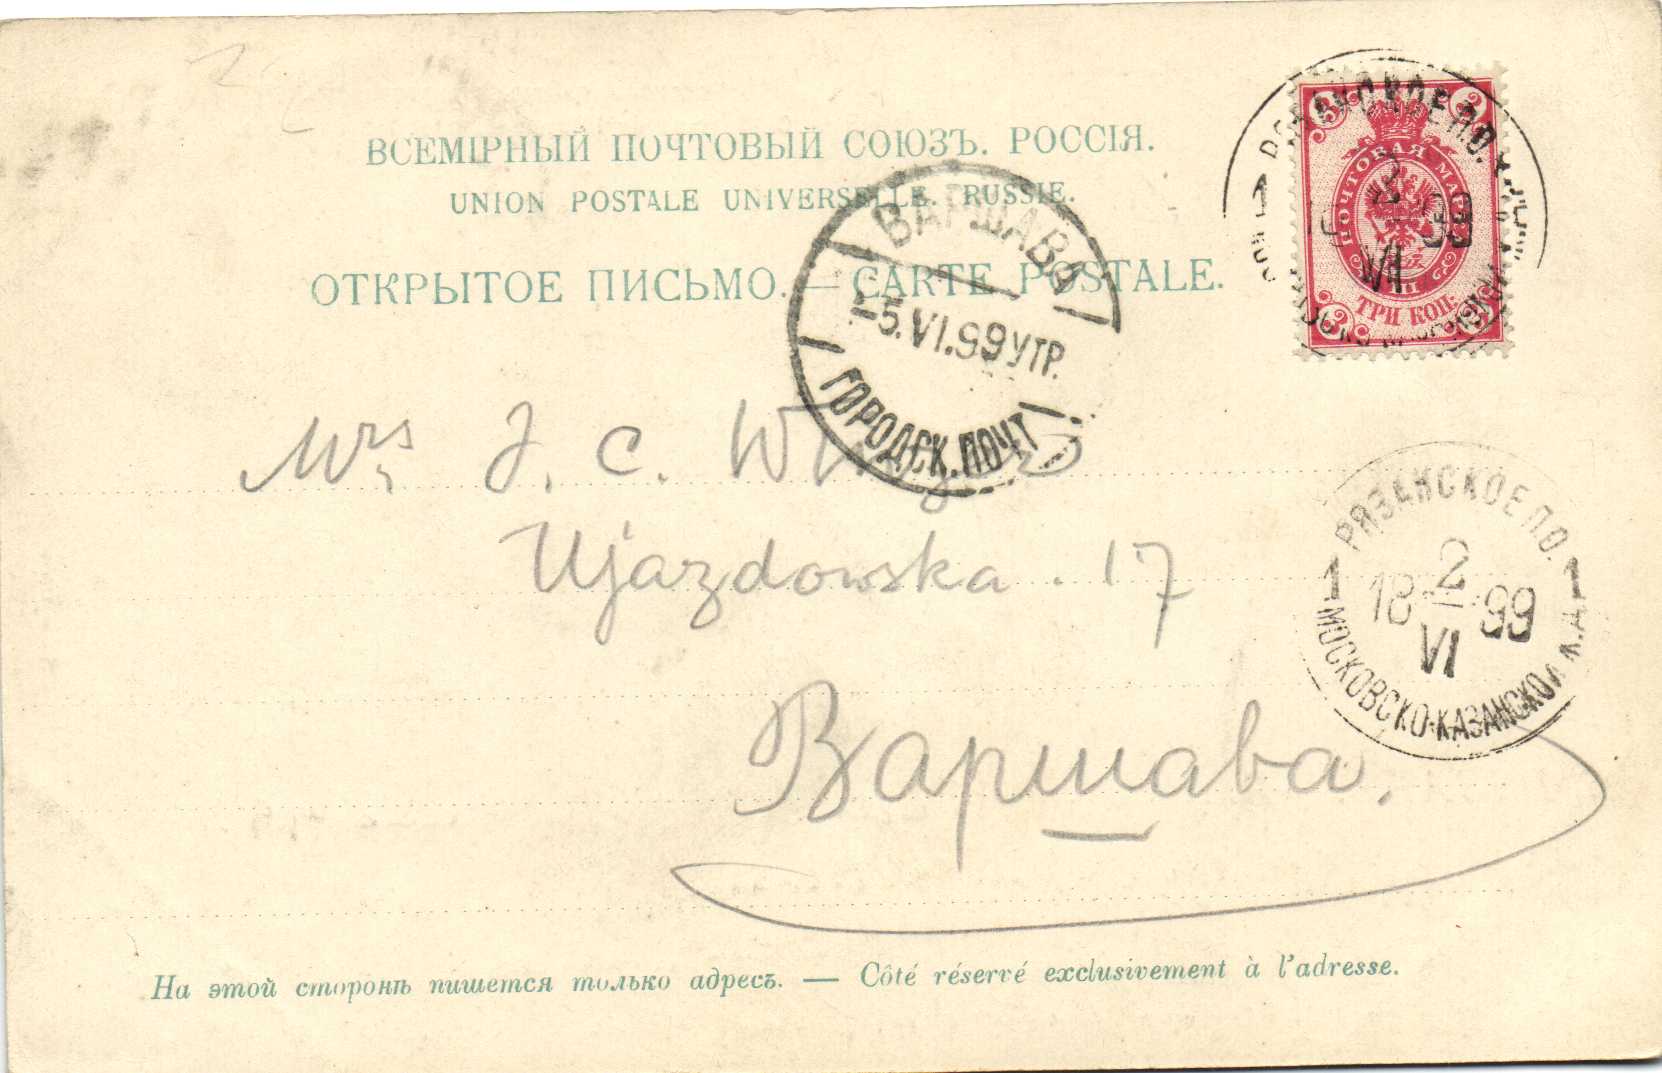 ВСЕМІРНЫЙ ПОЧТОВЫЙ СОЮЗЪ. РОССІЯ.
UNION POSTALE UNIVERSELLE. RUSSIE.
ОТКРЫТОЕ ПИСЬМО. — CARTE POSTALE.
ПОЧТОВАЯ МАРКА
ТРИ КОП.
3 3 3 3
2
VI
99
ВАРШАВА
-5.VI.99 УТР.
ГОРОДСК. ПОЧТ
Mrs J. C.
Ujazdowska . 17
Варшава.
РЯЗАНСКОЕ П.О.
1 18 2 VI 99 1
МОСКОВСКО-КАЗАНСКОЙ Ж.Д.
На этой сторонѣ пишется только адресъ. — Côté réservé exclusivement à l'adresse.